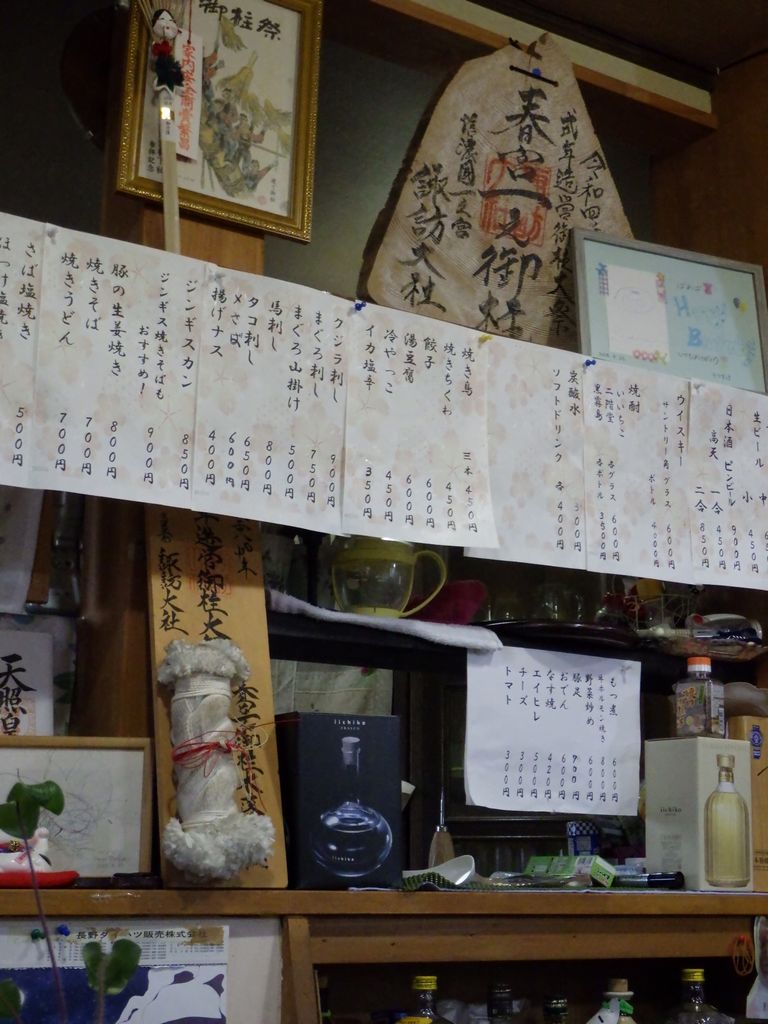 御柱祭
家内安全商賣繁昌
令和四
式年造営御柱大祭
春宮一之御柱
信濃國一之宮
諏訪大社
生ビール 中
小 450円
ビンビール 900円
日本酒 一合 450円
高天 二合 850円
ウイスキー
サントリー角 グラス 600円
ボトル 4000円
焼酎
いいちこ
二階堂 各グラス 600円
黒霧島 各ボトル 3500円
炭酸水 300円
ソフトドリンク 各 400円
焼き鳥 三本 450円
焼きちくわ 450円
餃子 600円
湯豆腐 600円
冷やっこ 450円
イカ塩辛 350円
クジラ刺し 900円
まぐろ刺し 750円
まぐろ山掛け 500円
馬刺し 800円
タコ刺し 650円
〆さば 600円
揚げナス 400円
ジンギスカン 850円
ジンギス焼きそばも
おすすめ! 900円
豚の生姜焼き 800円
焼きそば 700円
焼きうどん 700円
さば塩焼き 500円
ほっけ塩焼き
もつ煮 600円
牛ホルモン焼き 800円
野菜炒め 600円
豚足 700円
おでん 600円
なす焼 420円
エイヒレ 500円
チーズ 300円
トマト 300円
年造営御柱大
諏訪大社
天照皇
iichiko
iichiko
iichiko
長野ダイハツ販売株式会社